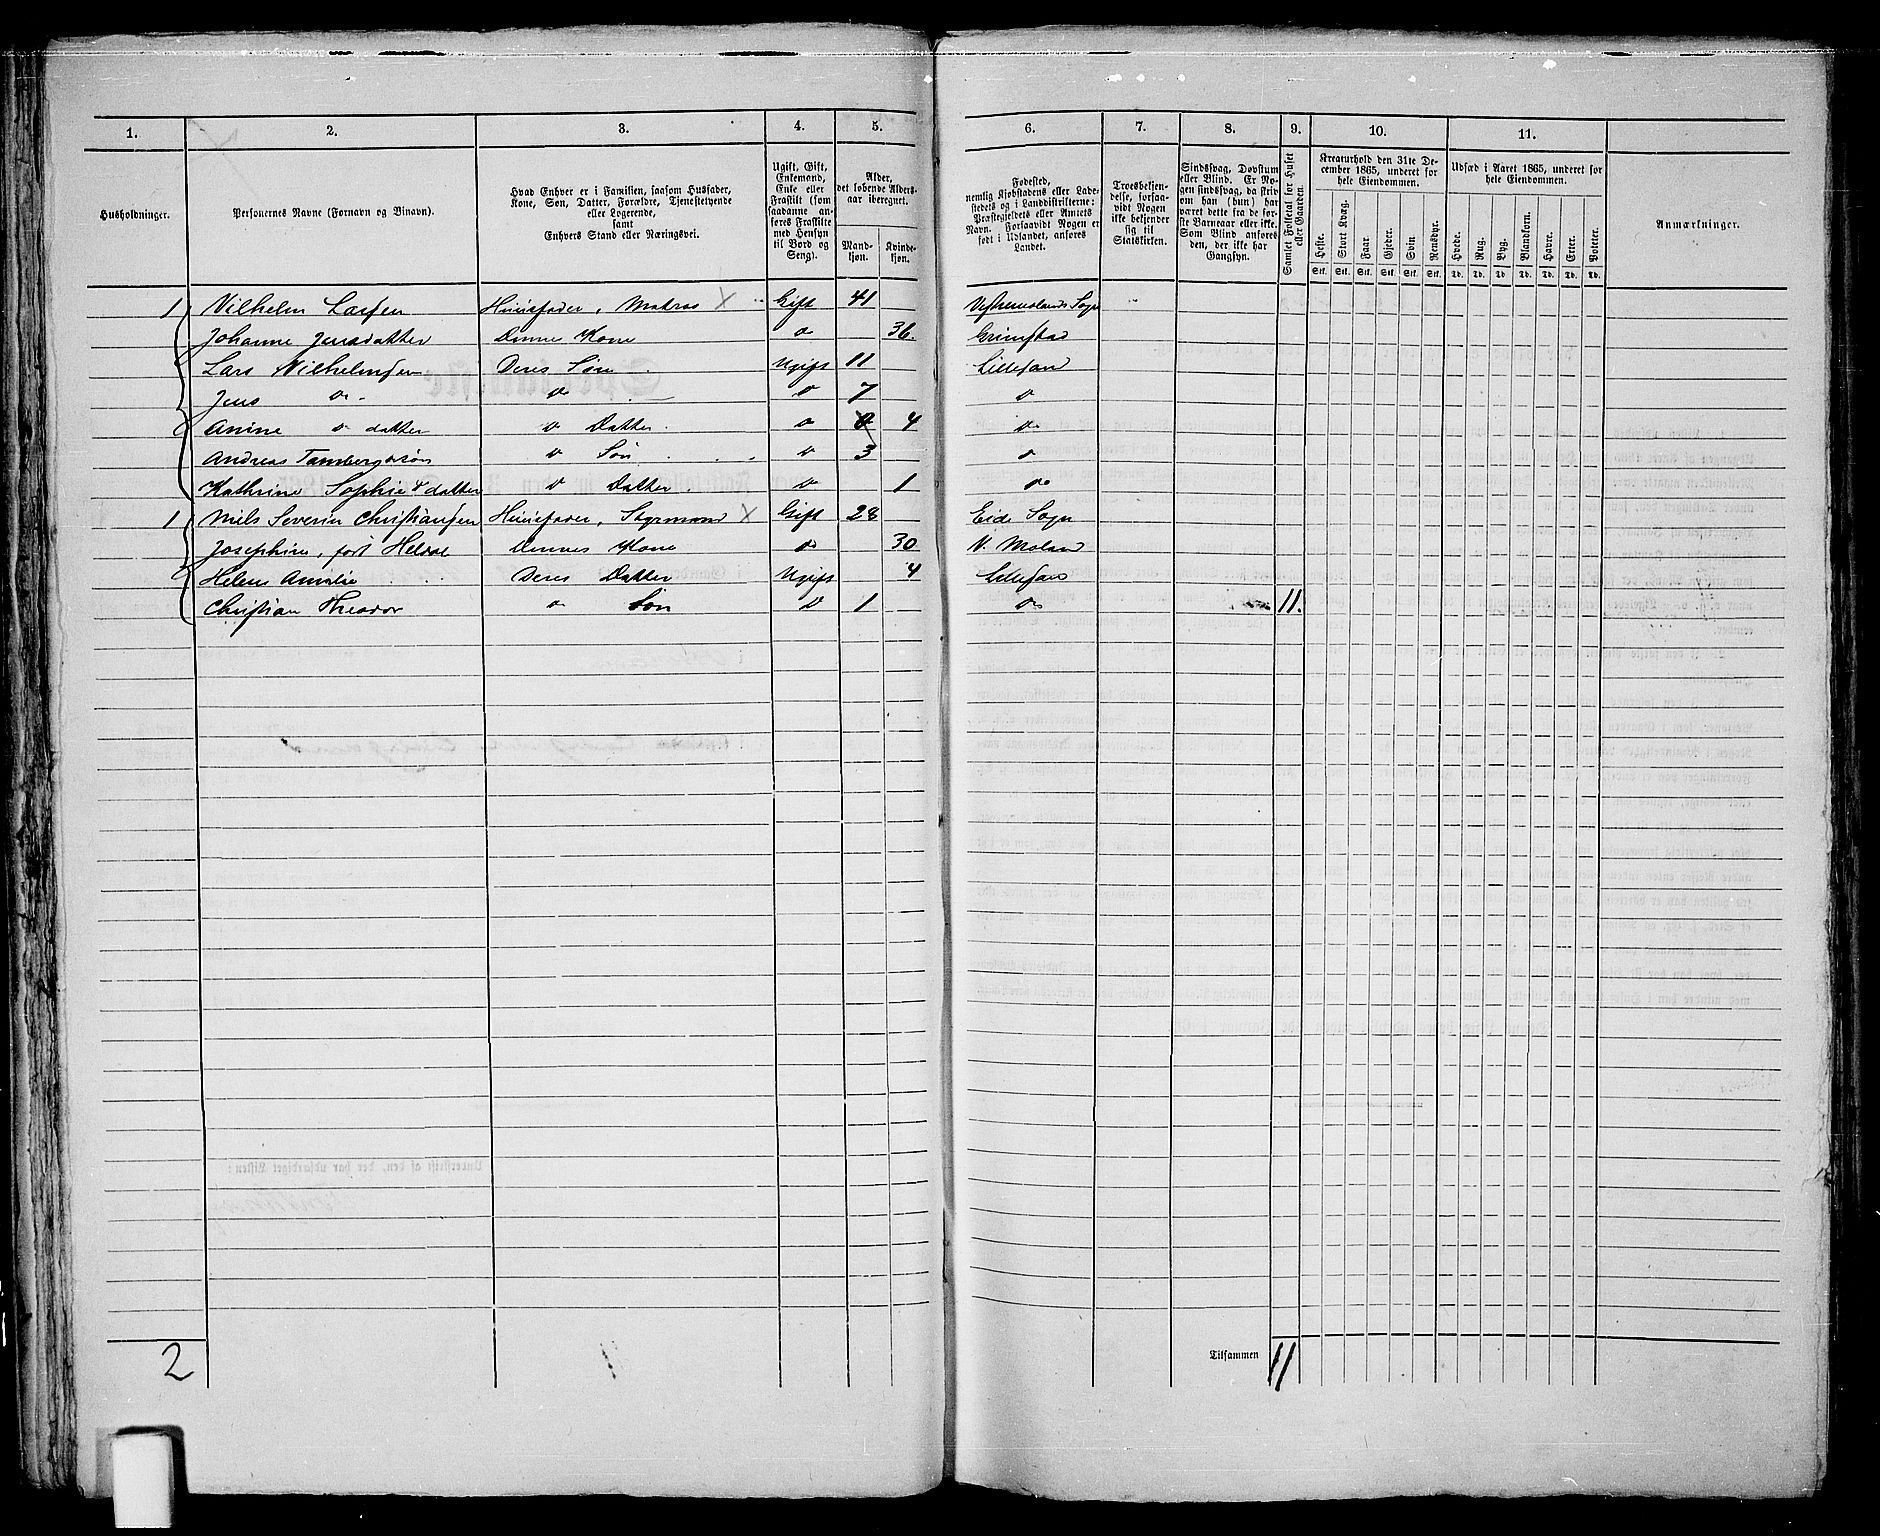 1. 2. 3. 4. 5. 6. 7. 8. 9. 10. 11.
Husholdninger.
Personernes Navne (Fornavn og Binavn).
Hvad Enhver er i Familien, saasom Husfader,
Kone, Søn, Datter, Forældre, Tjenestetyende
eller Logerende,
samt
Enhvers Stand eller Næringsvei.
Ugift, Gift,
Enkemand,
Enke eller
Fraskilt (som
saadanne an-
føres Fraskilte
med Hensyn
til Bord og
Seng).
Alder,
det løbende Alders-
aar iberegnet.
Mand-
kjøn.
Kvinde-
kjøn.
Fødested,
nemlig Kjøbstadens eller Lade-
stedets og i Landdistrikterne:
Præstegjeldets eller Amtets
Navn. Forsaavidt Nogen er
født i Udlandet, anføres
Landet.
Troesbekjen-
delse, forsaa-
vidt Nogen
ikke bekjender
sig til
Statskirken.
Sindssvag, Døvstum
eller Blind. Er No-
gen sindssvag, da skriv
om han (hun) har
været dette fra de før-
ste Barneaar eller ikke.
Som Blind anføres
den, der ikke har
Gangsyn.
Samlet Folketal for Huset
eller Gaarden.
Kreaturhold den 31te De-
cember 1865, underet for
hele Eiendommen.
Heste. Stort Kvæg. Faar. Gjeder. Svin. Rensdyr.
Stk. Stk. Stk. Stk. Stk. Stk.
Udsæd i Aaret 1865, underet for
hele Eiendommen.
Hvede. Rug. Byg. Blandkorn. Havre. Erter. Poteter.
Td. Td. Td. Td. Td. Td. Td.
Anmærkninger.
1 Vilhelm Larsen Huusfader, Matros X Gift 41 Vestremolands Sogn
Johanne Jensdatter Dennes Kone do 36. Grimstad
Lars Vilhelmsen Deres Søn Ugift 11 Lillesand
Jens do do do 7 do
Anine do datter do Datter do 4 do
Andreas Tambergssøn do Søn do 3 do
Kathrine Sophie do datter do Datter do 1 do
1 Niels Severin Christiansen Huusfader, Styrmand X Gift 28 Eide Sogn
Josephine, født Dennes Kone do 30 V. Moland
Helene Amalie Deres Datter Ugift 4 Lillesand
Christian Theodor do Søn do 1 do 11.
2
Tilsammen 11